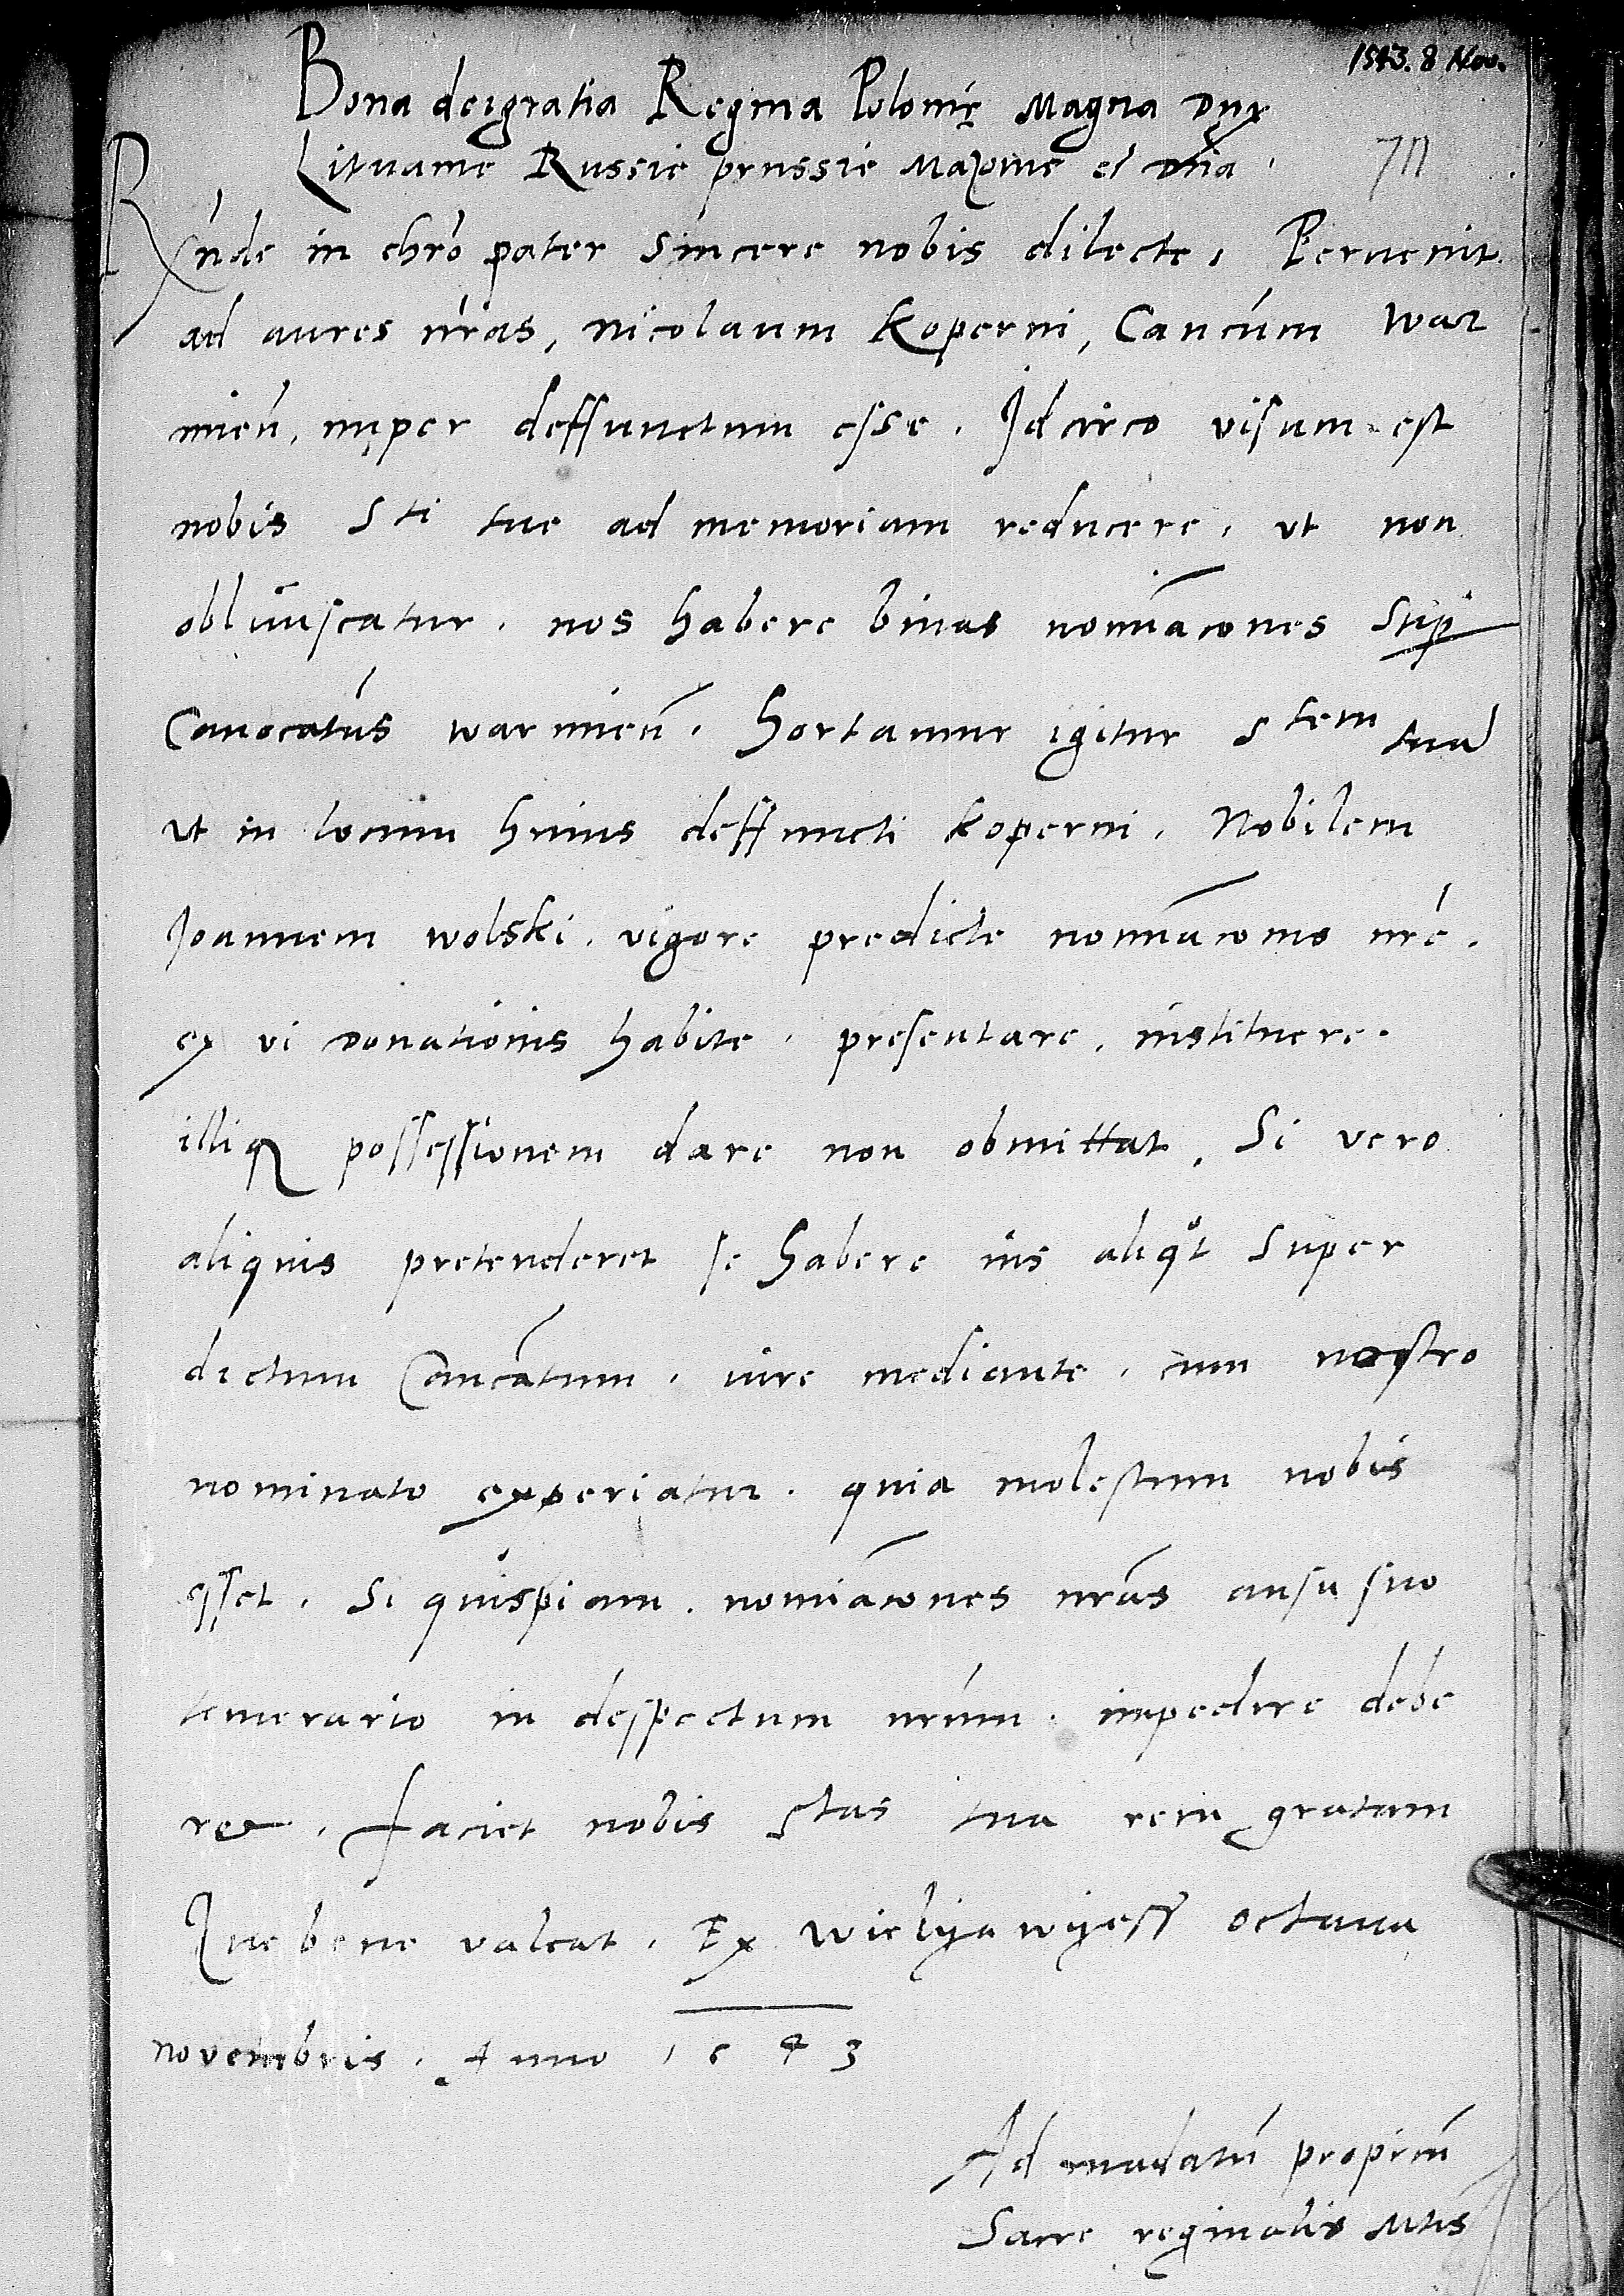 1543. 8 Nov.
Bona dei gratia Regina Polonię Magna Dux
Lituanie Russie prussie Mazouie et dña.
Rńde in chrő pater sincere nobis dilecte, Peruenit
ad aures nr̃as, nicolaum Koperni, Cancũm War
mieñ, nuper deffunctum esse. Idcirco visum est
nobis Sti tue ad memoriam reducere, vt non
obliuiscatur, nos habere binas nomiãcones sup
Canocatũs warmieñ. Hortamur igitur Stem tuã
vt in locum huius deffuncti koperni, Nobilem
Joannem wolski, vigore predicte nomiãconis nr̃e,
ex vi donationis habite, presentare, instituere,
illiq possessionem dare non obmittat, Si vero
aliquis pretenderet se habere ius aliqd super
dictum Cancãtum, iure mediante, cum nostro
nominato experiatur, quia molestum nobis
esset, Si quispiam, nomiãcones nr̃as ausu suo
temerario in despectum nr̃um, impedire debe
ret, faciet nobis Stas tua rem gratam
Que bene valeat, Ex wielyawyess octaua
novembris. Anno 1543
Ad mãdatũ propriũ
Sacre reginalis Mtis